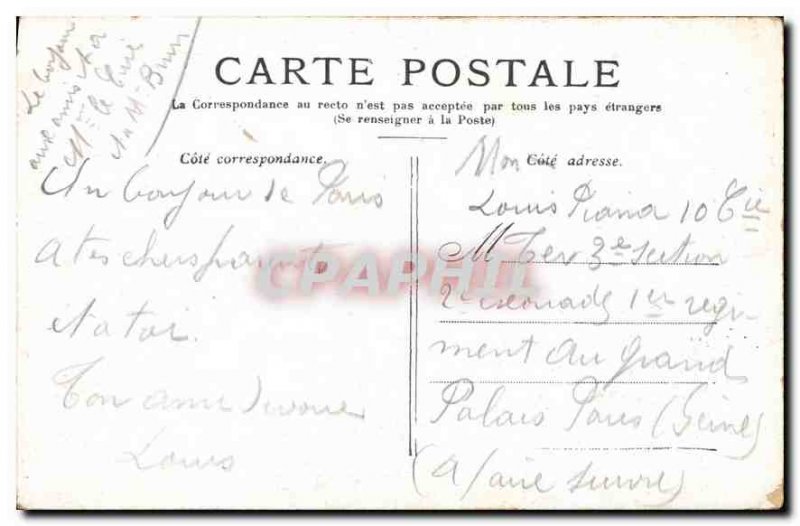 Le bonjour
aux amis et a
Mr le Curé
et a M. Brun
CARTE POSTALE
La Correspondance au recto n'est pas acceptée par tous les pays étrangers
(Se renseigner à la Poste)
Côté correspondance.
Côté adresse.
Un bonjour de Paris
a tes chers parents
et a toi.
Ton ami
Louis
Mon
Louis Piana 10 Cie
3e section
2e escouade 1er régi-
ment du grand
Palais Paris (Seine)
(A faire suivre)
CPAPHIL